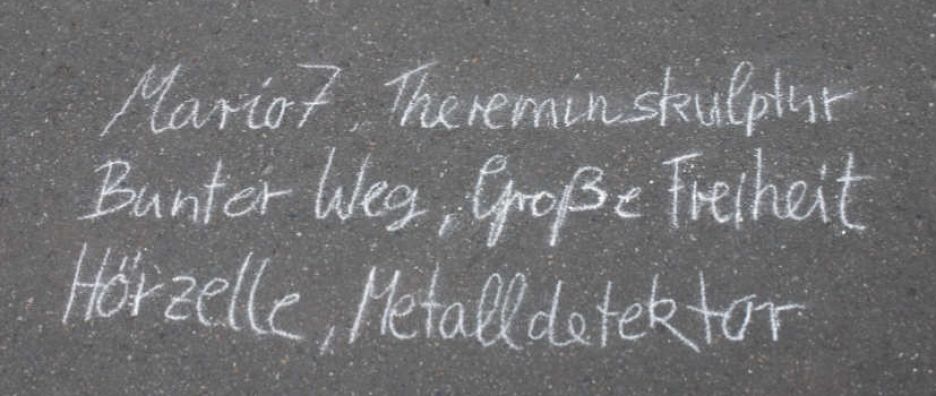 Mario7, Thereminskulptur
Bunter Weg, Große Freiheit
Hörzelle, Metalldetektor